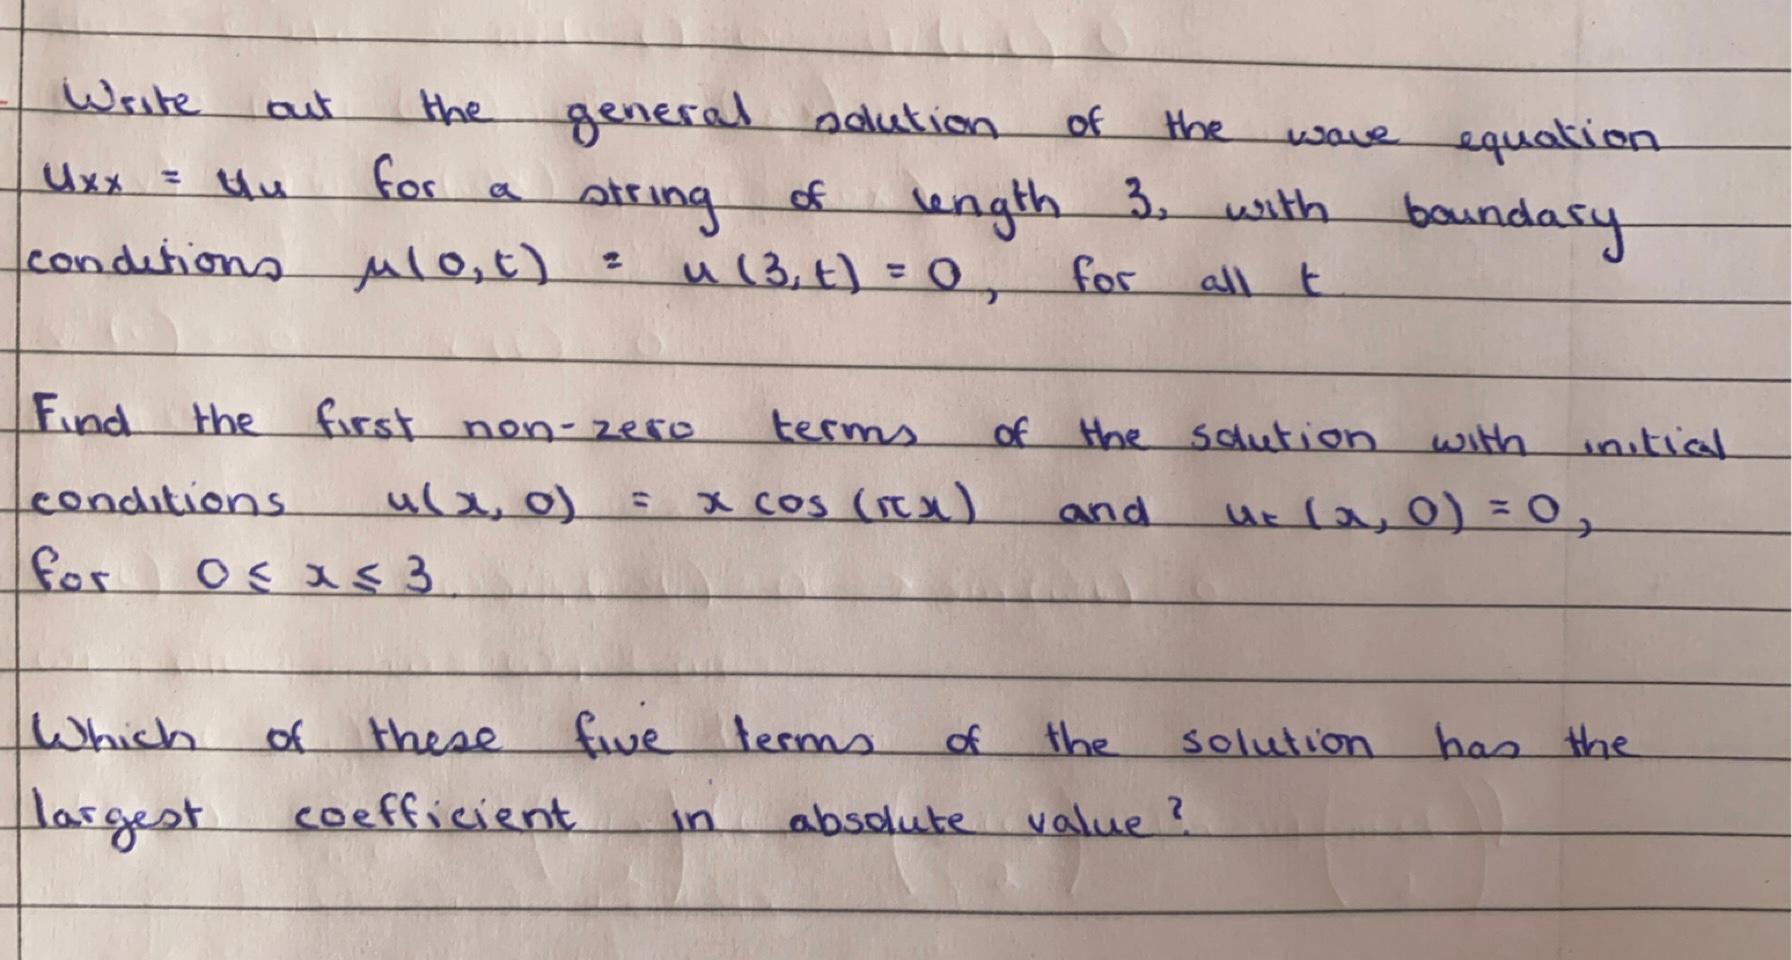 Write out the general solution of the wave equation
uxx = utt for a string of length 3, with boundary
conditions μ(0,t) = u(3,t) = 0, for all t
Find the first non-zero terms of the solution with initial
conditions u(x, 0) = x cos (πx) and ut (x, 0) = 0,
for 0 ≤ x ≤ 3.
Which of these five terms of the solution has the
largest coefficient in absolute value?